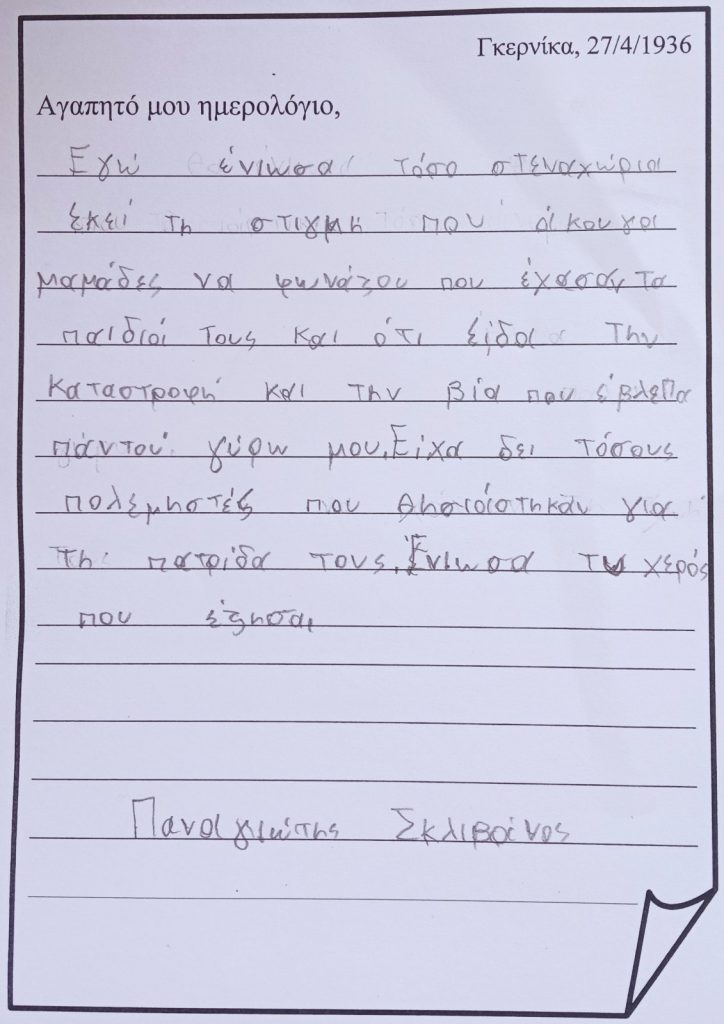 Γκερνίκα, 27/4/1936
Αγαπητό μου ημερολόγιο,
Εγώ ένιωσα τόσο στεναχώρια
εκεί τη στιγμή που άκουγα
μαμάδες να φωνάζου που έχασαν τα
παιδιά τους και ότι είδα την
καταστροφή και την βία που έβλεπα
πάντού γύρω μου. Είχα δει τόσους
πολεμηστές που θησιάστηκαν για
τη πατρίδα τους. Ένιωσα τυχερός
που έζησα.
Παναγιώτης Σκλιβάνος